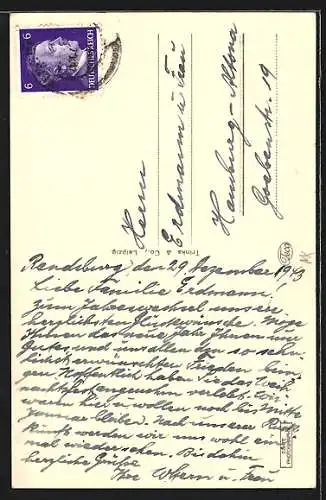 6 6
DEUTSCHES REICH
Herrn
Erdmann u. Frau
Hamburg-Altona
Goebenstr. 19
Trinks & Co., Leipzig
Trinco
Rendsburg den 29. Dezember 1943
Liebe Familie Erdmann!
Zum Jahreswechsel unsere
herzlichsten Glückwünsche. Möge
Ihnen das neue Jahr Ihnen nur
Gutes, und uns allen den so sehn-
lichst erwünschten Frieden brin-
gen. Hoffentlich haben Sie das Weih-
nachtsfest angenehm verlebt. Wir
waren hier u. wollen noch bis Mitte
Januar bleiben. Nach unserer Rück-
kunft werden wir uns wohl ein-
mal wiedersehen. Bis dahin
herzliche Grüße
Ihre u. Frau